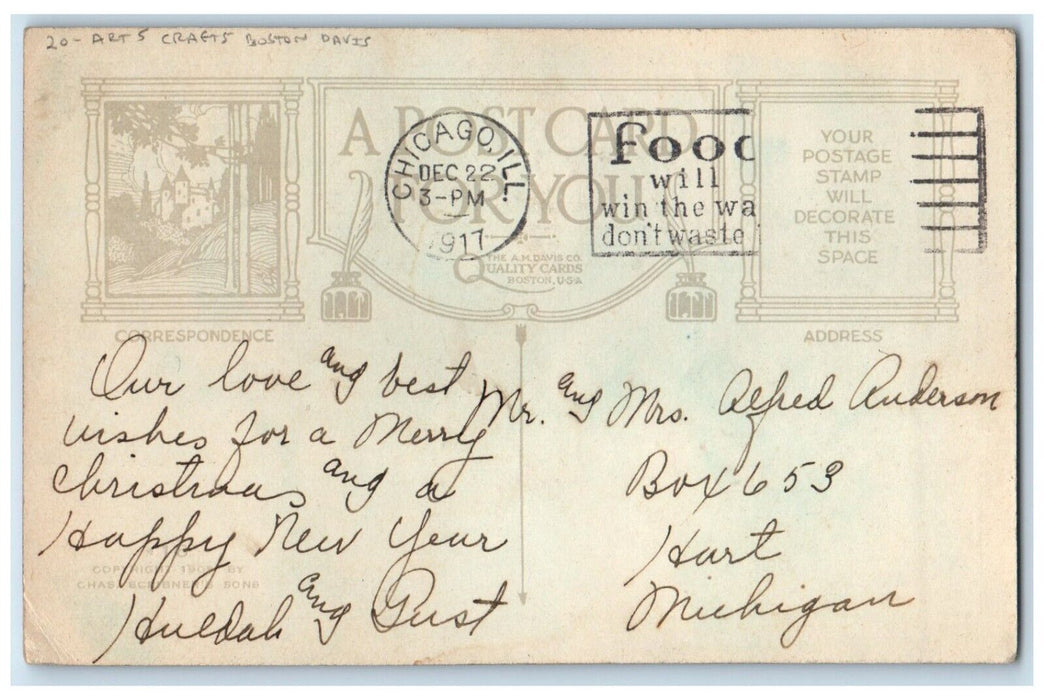 20- ARTS CRAFTS BOSTON DAVIS
A POST CARD
FOR YOU
CHICAGO, ILL.
DEC 22
3-PM
1917
FOOD
will
win the wa
don't waste
YOUR
POSTAGE
STAMP
WILL
DECORATE
THIS
SPACE
THE A.M. DAVIS CO.
QUALITY CARDS
BOSTON, U·S·A
CORRESPONDENCE
ADDRESS
Our love and best
wishes for a Merry
Christmas and a
Happy New Year
Huldah and Gust
COPYRIGHT BY
CHAS. SCRIBNER'S SONS
Mr. and Mrs. Alfred Anderson
Box 653
Hart
Michigan